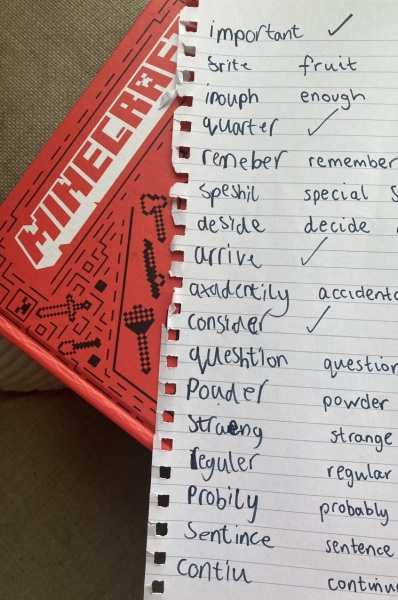 MINECRAF
important ✓
srite fruit
inouph enough
quarter ✓
remeber remember
speshil special S
deside decide
arrive ✓
axadentily accidenta
consider ✓
queshtion question
Pouder powder
Straeng strange
reguler regular
Probily probably
Sentince sentence
contiu continu